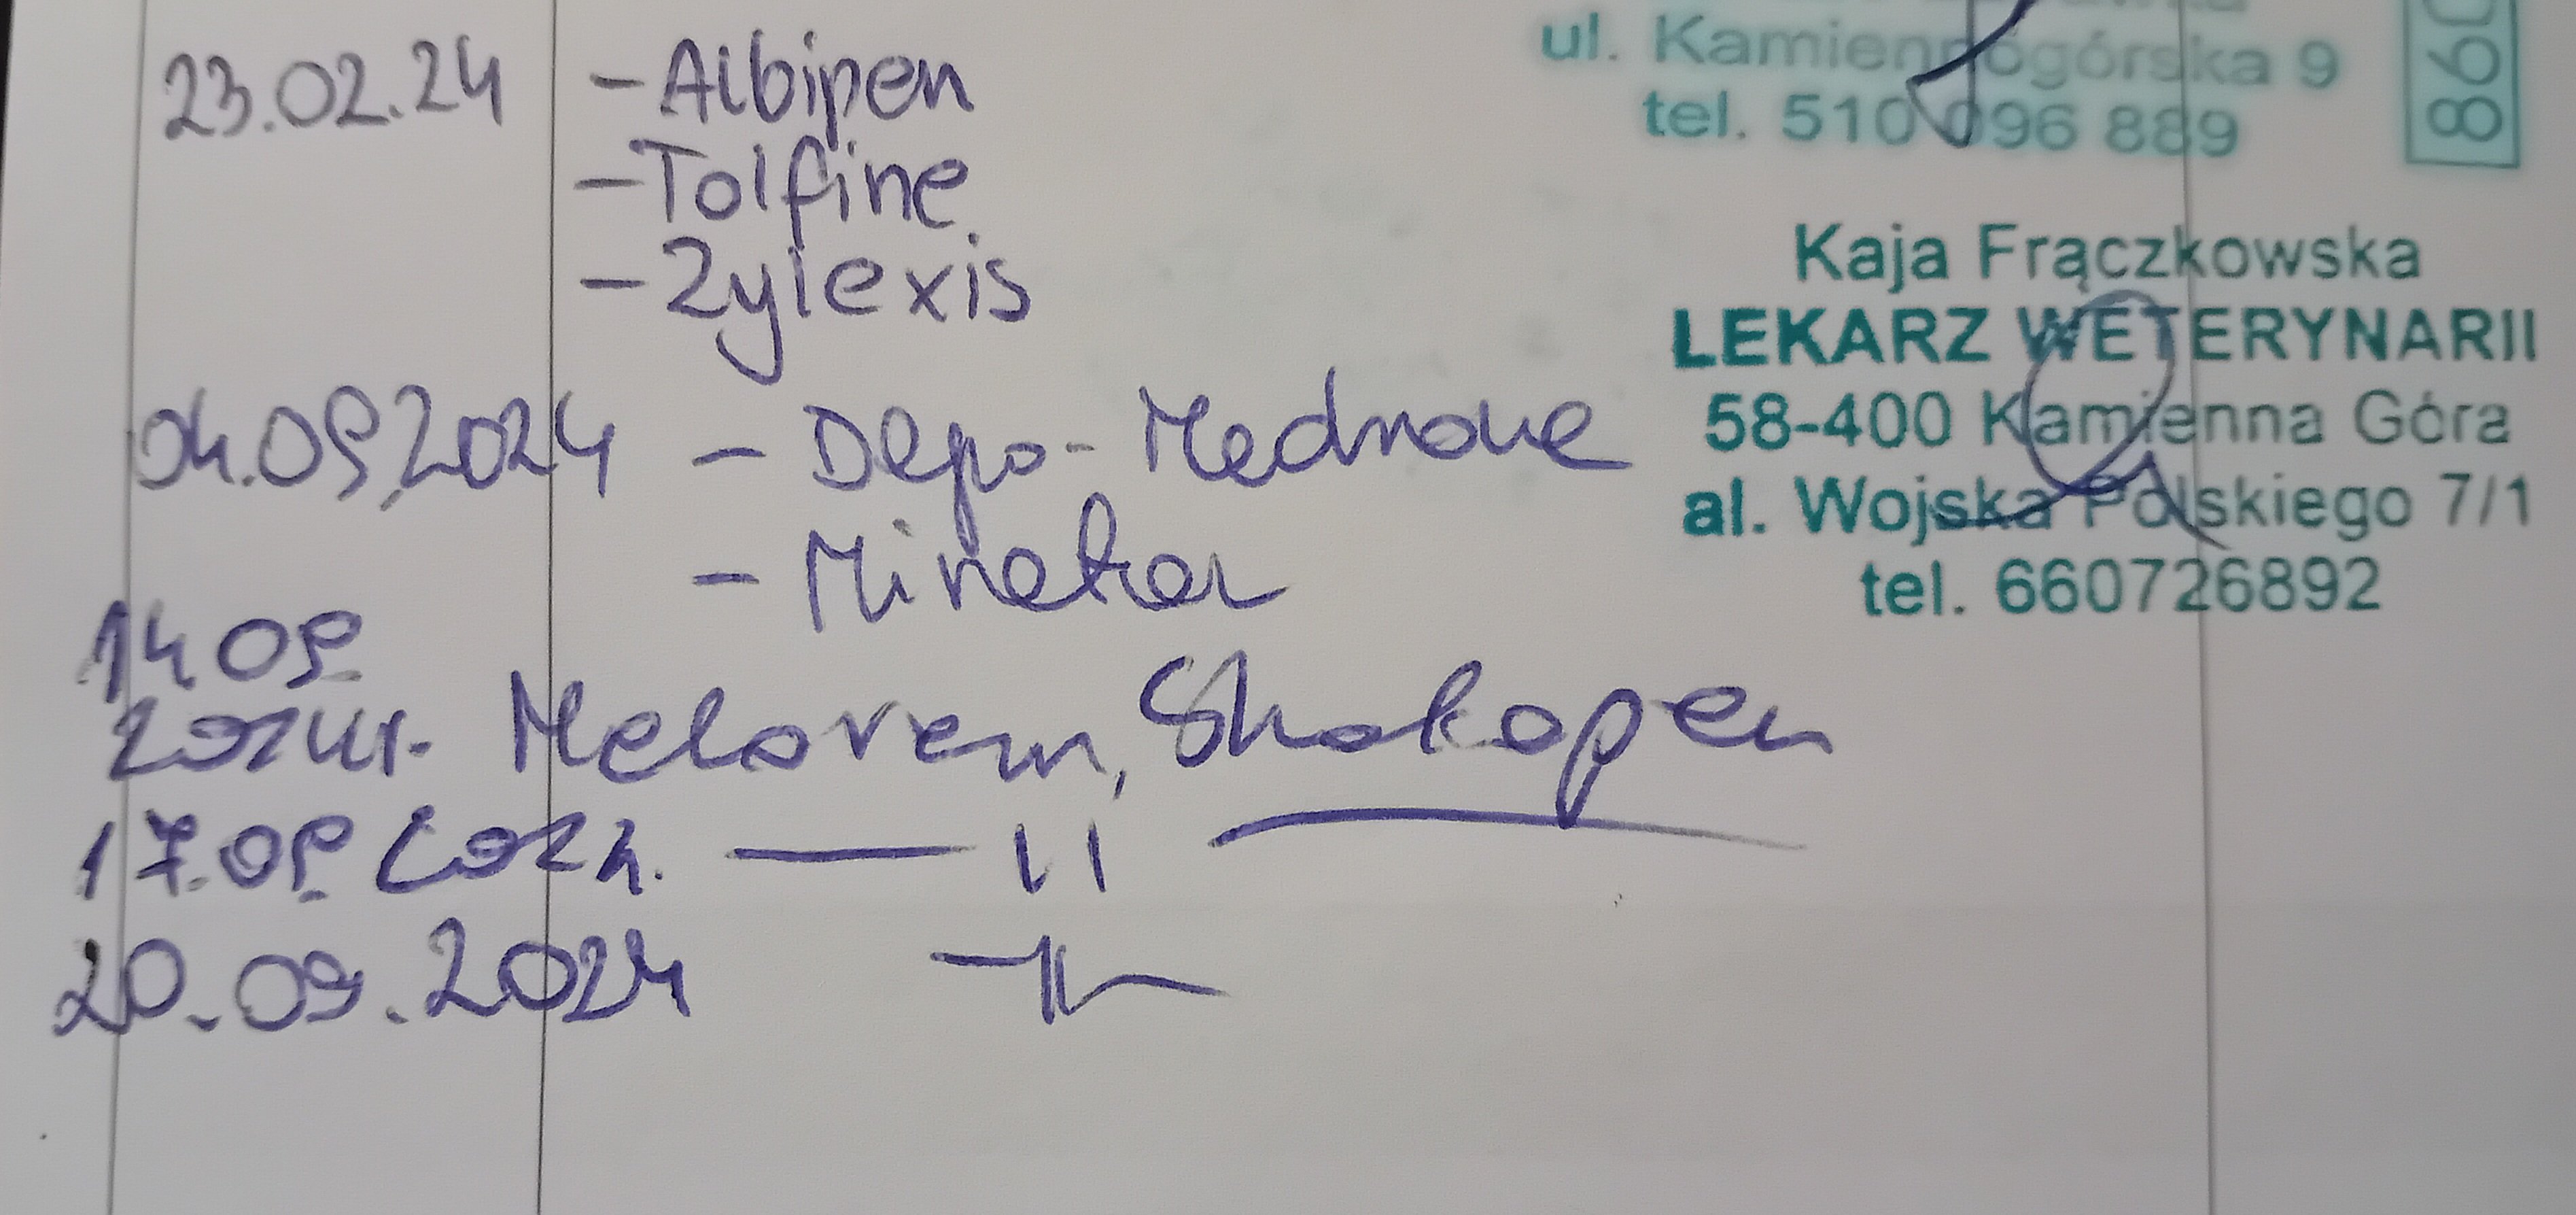 ul. Kamiennogórska 9
tel. 510 096 889
860
23.02.24 - Albipen
- Tolfine
- Zylexis
Kaja Frączkowska
LEKARZ WETERYNARII
58-400 Kamienna Góra
al. Wojska Polskiego 7/1
tel. 660726892
04.09.2024 - Depo-Medrone
-
14 09
2024r. Melovem, Shotapen
17.09 2024. — 11 —
20.09.2024 -11-